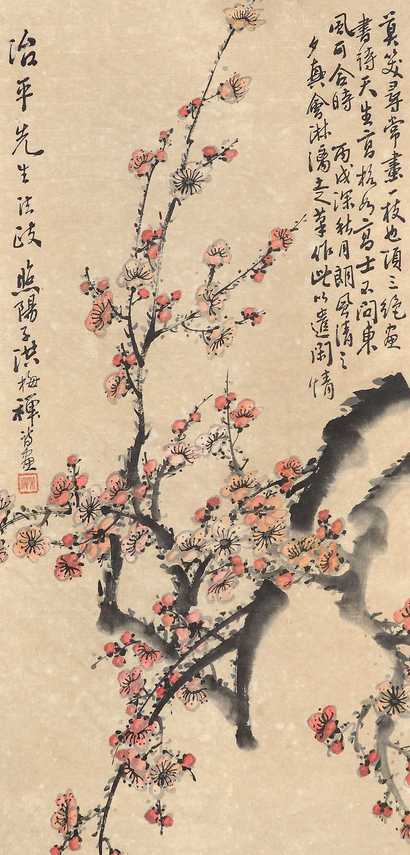 莫笑尋常畫一枝也頂三絕畫
書詩天生高格如高士不問東
風可合時 丙戌深秋月朗風清之
夕真會淋漓走筆作此以遣閒情
治平先生法政 熙陽子洪梅禪詩畫